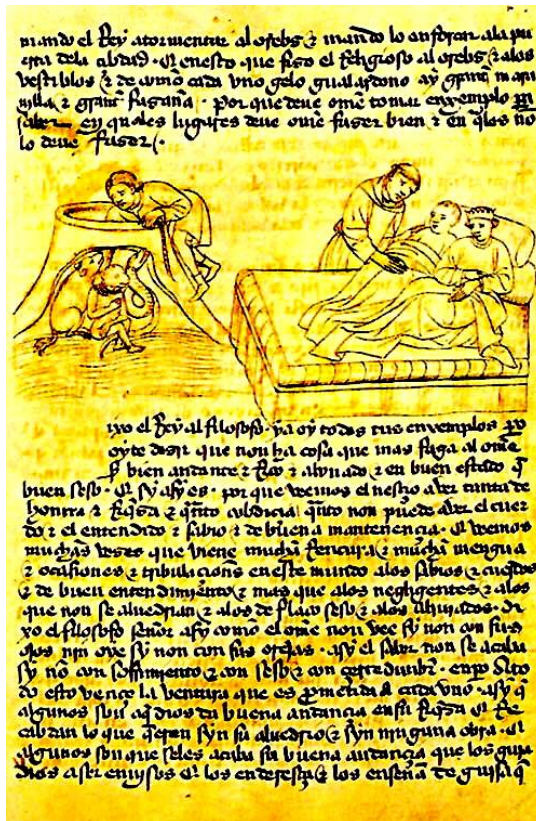 mando el Rey atormentar al orebs & mando lo enforcar ala pu
erta dela çibdad. Et en esto que fizo el Religioso al orebs & alos
vestiblos & de commo cada vno gelo gualardono ay grant mara
villa & grant fazaña. por que deue ome tomar enxemplo
saber en quales lugares deue ome faser bien & en qles no
lo deue faser
ixo el Rey al filosofo. ya oy todos tus enxemplos
oyte desir que non ha cosa que mas faga al ome
bien andante & Rico & ahuiado & en buen estado q
buen seso. Et sy asy es. por que veemos el nesçio aver tanta de
honrra & Riqsa & qnto cobdiçia qnto non puede aver el cuer
do & el entendido & sabio & de buena mantenençia. Et veemos
muchas veses que viene mucha Rencura & mucha mengua
& ocasiones & tribulaçiones en este mundo alos sabios & cuerdos
& de buen entendimiento & mas que alos negligentes & alos
que non se aluedrian & alos de flaco seso & alos ahuiados. di
xo el filosofo señor asy commo el ome non vee sy non con sus
ojos nin oye sy non con sus orejas. asy el saber non se acaba
sy no con sofrimiento & con seso & con çertedunbr.
do esto vençe la ventura que es prometida a cada vno. asy q
algunos son aq dios da buena andança en su Riqsa Et Re
cabdan lo que qeren syn su aluedrio & syn ninguna obra. Et
algunos son que seles acaba su buena andança que los guia
dios a ser enuisos Et los enderesça & los enseña de guisa q